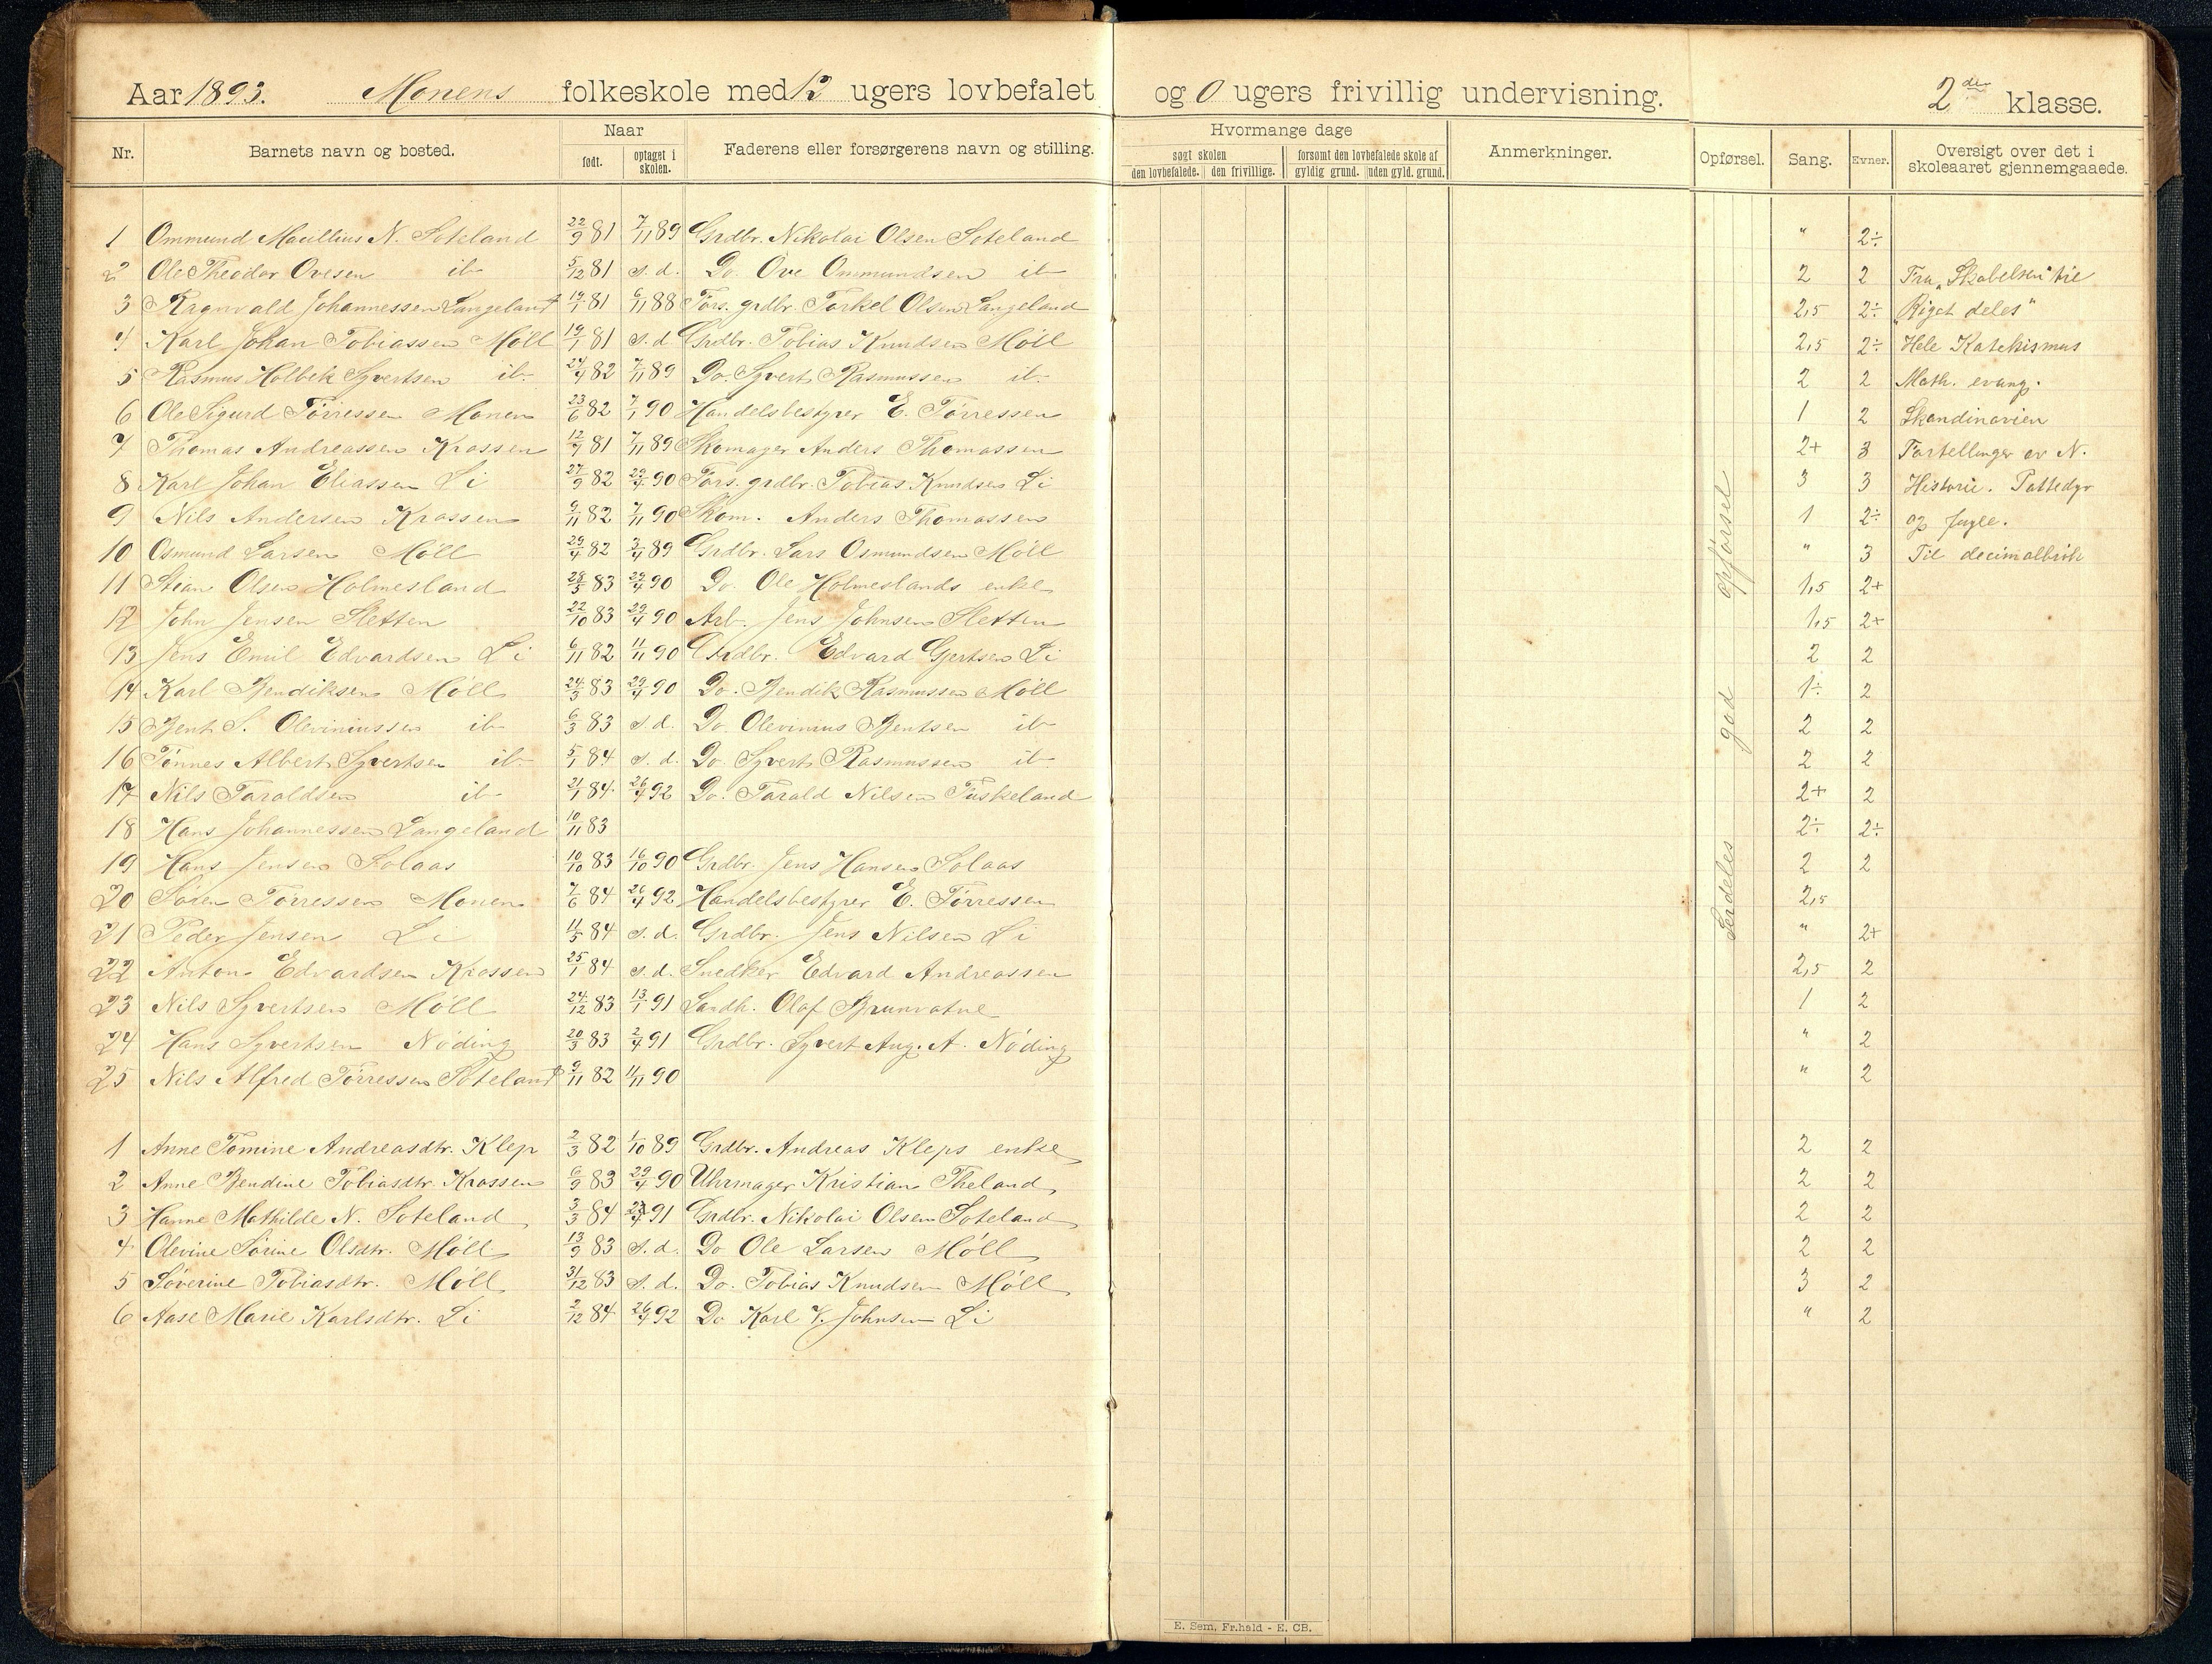 Aar 1893. Monens folkeskole med 12 ugers lovbefalet og 0 ugers frivillig undervisning. 2den klasse.
Nr. Barnets navn og bosted. Naar født. optaget i skolen. Faderens eller forsørgerens navn og stilling. Hvormange dage søgt skolen den lovbefalede. den frivillige. forsømt den lovbefalede skole af gyldig grund. uden gyld. grund. Anmerkninger. Opførsel. Sang. Evner. Oversigt over det i skoleaaret gjennemgaaede.
1 Ommund N. Soteland 22/9 81 7/11 89 Grdbr. Nikolai Olsen Soteland " 2÷
2 Ole Theodor Ovesen ib 5/12 81 s.d. Do. Ove Ommundsen ib 2 2 Fra "Skabelsen" til
3 Ragnvald Johannessen Langeland 19/1 81 6/11 88 Førs. grdbr. Torkel Olsen Langeland 2,5 2÷ "Riget deles"
4 Karl Johan Tobiassen Möll 19/1 81 s.d. Grdbr. Tobias Knudsen Möll 2,5 2÷ Hele Katekismus
5 Rasmus Holbek Syvertsen ib. 24/4 82 7/11 89 Do. Syvert Rasmussen ib. 2 2 Math. evang.
6 Ole Sigurd Tørressen Monen 23/6 82 7/1 90 Handelsbestyrer E. Tørressen 1 2 Skandinavien
7 Thomas Andreassen Krossen 12/9 81 7/11 89 Skomager Anders Thomassen 2+ 3 Fortellinger av N.
8 Karl Johan Eliassen Li 27/9 82 29/4 90 Førs. grdbr. Tobias Knudsen Li 3 3 Historie. Pattedyr
9 Nils Andersen Krossen 9/11 82 7/11 90 Skom. Anders Thomassen 1 2÷ og fugle.
10 Osmund Larsen Möll 29/4 82 3/4 89 Grdbr. Lars Osmundsen Möll " 3 Til decimalbrök
11 Stian Olsen Holmesland 28/5 83 29/4 90 Do. Ole Holmeslands enke 1,5 2+
12 John Jensen Sletten 22/10 83 29/4 90 Arb. Jens Johnsen Sletten 1,5 2+
13 Jens Emil Edvardsen Li 6/11 82 11/11 90 Grdbr. Edvard Gjertsen Li 2 2
14 Karl Bendiksen Möll 24/3 83 29/4 90 Do. Bendik Rasmussen Möll 1÷ 2
15 Bent S. Oleviniussen ib 6/3 83 s.d. Do Olevinius Bentsen ib 2 2
16 Tönnes Albert Syvertsen ib 5/1 84 s.d. Do. Syvert Rasmussen ib 2 2
17 Nils Taraldsen ib 21/1 84 26/4 92 Do. Tarald Nilsen Tuskeland 2+ 2
18 Hans Johannessen Langeland 10/11 83 2÷ 2÷
19 Hans Jensen Solaas 10/10 83 16/10 90 Grdbr. Jens Hansen Solaas 2 2
20 Sören Tørressen Monen 7/6 84 26/4 92 Handelsbestyrer E. Tørressen 2,5
21 Peder Jensen Li 11/5 84 s.d. Grdbr. Jens Nilsen Li " 2+
22 Anton Edvardsen Krossen 25/1 84 s.d. Snedker Edvard Andreassen 2,5 2
23 Nils Syvertsen Möll 24/12 83 13/1 91 Landh. Olaf Brunvatne 1 2
24 Hans Syvertsen Nöding 20/3 83 2/4 91 Grdbr. Syvert Aug. A. Nöding " 2
25 Nils Alfred Tørressen Soteland 9/11 82 11/11 90 " 2
1 Anne Tomine Andreasdtr. Klep 2/3 82 1/10 89 Grdbr. Andreas Kleps enke 2 2
2 Anne Bendine Tobiasdtr. Krossen 6/9 83 29/4 90 Uhrmager Kristian Theland 2 2
3 Hanne Mathilde N. Soteland 3/3 84 91 Grdbr. Nikolai Olsen Soteland 2 2
4 Olevine Sörine Olsdtr. Möll 13/9 83 s.d. Do Ole Larsen Möll 2 2
5 Söverine Tobiasdtr. Möll 31/12 83 s.d. Do. Tobias Knudsen Möll 3 2
6 Aase Marie Karlsdtr. Li 2/12 84 26/4 92 Do Karl V. Johnsen Li " 2
Serdeles god opførsel
E. Sem, Fr.hald - E. CB.